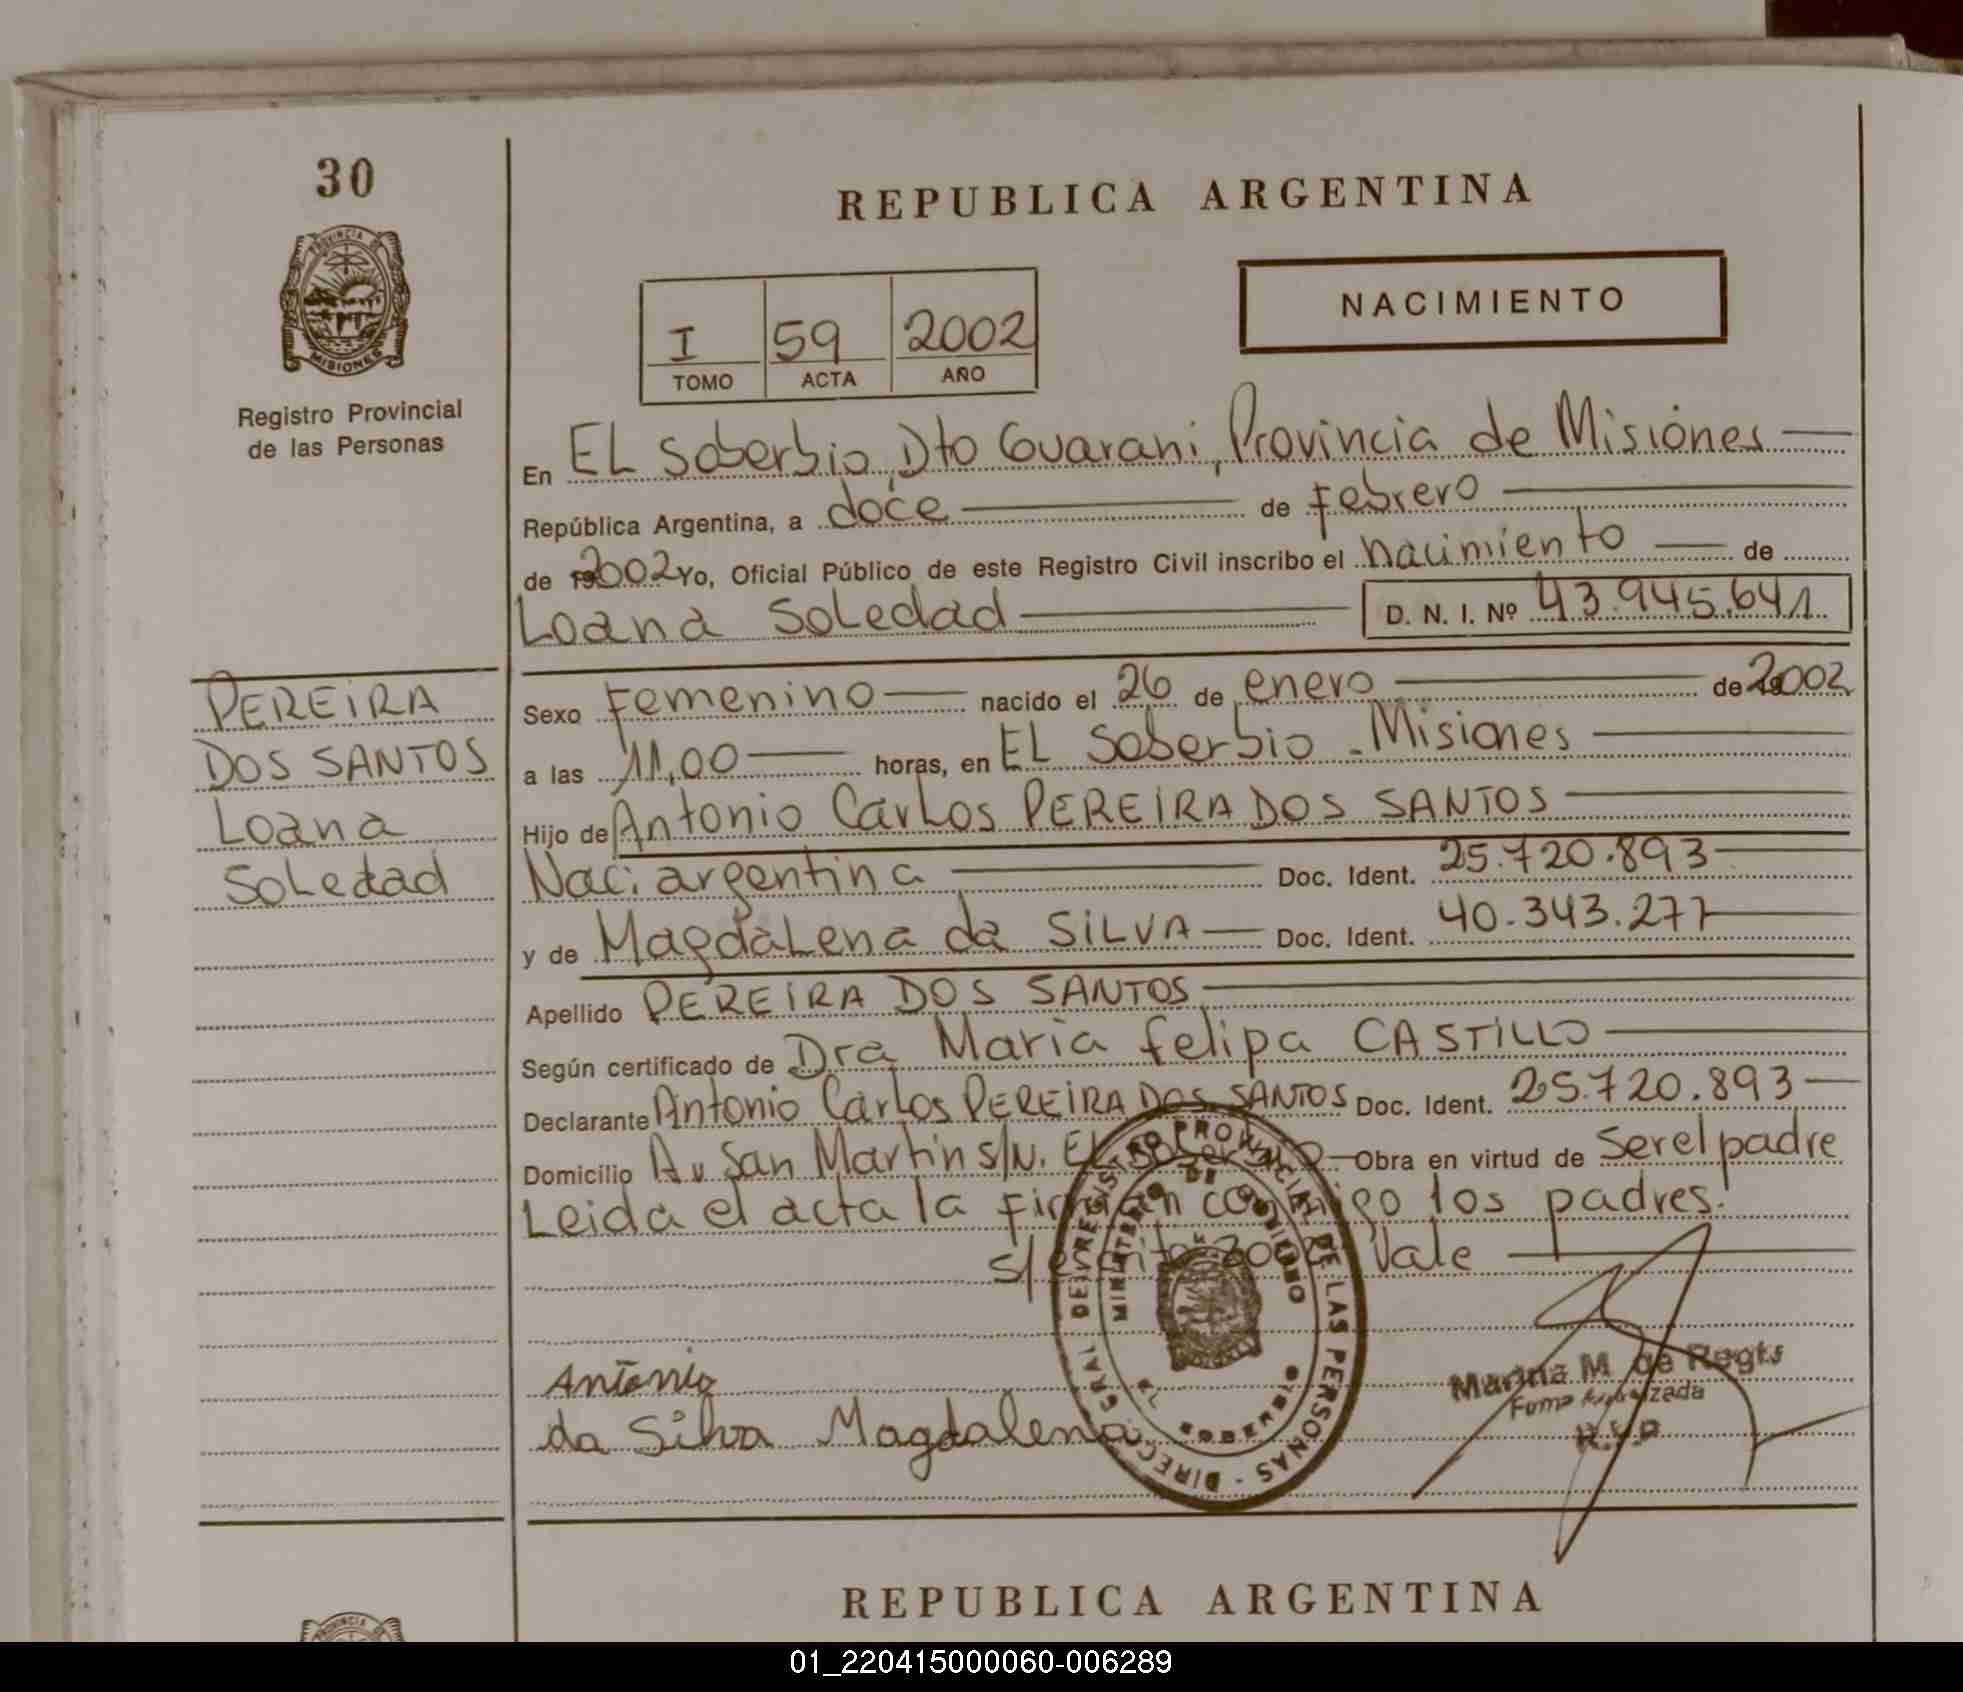 30
PROVINCIA DE
MISIONES
Registro Provincial
de las Personas
REPUBLICA ARGENTINA
NACIMIENTO
I 59 2002
TOMO ACTA AÑO
En EL Soberbio, Dto Guarani, Provincia de Misiones
República Argentina, a doce de Febrero
de 2002 Yo, Oficial Público de este Registro Civil inscribo el nacimiento de
Loana Soledad D. N. I. Nº 43.945.641
PEREIRA
DOS SANTOS
Loana
Soledad
Sexo Femenino nacido el 26 de enero de 2002
a las 11,00 horas, en EL Soberbio - Misiones
Hijo de Antonio Carlos PEREIRA DOS SANTOS
Naci. argentina Doc. Ident. 25.720.893
y de Magdalena da SILVA Doc. Ident. 40.343.277
Apellido PEREIRA DOS SANTOS
Según certificado de Dra Maria Felipa CASTILLO
Declarante Antonio Carlos PEREIRA DOS SANTOS Doc. Ident. 25.720.893
Domicilio Av San Martin s/N. EL Soberbio Obra en virtud de Ser el padre
Leida el acta la firman conmigo los padres.
s/escrito 2002 Vale
REGISTRO PROVINCIAL DE LAS PERSONAS - DIRECC GRAL DEL
MINISTERIO DE GOBIERNO
Antonio
da Silva Magdalena
Marina M. de Regts
Firma Autorizada
R.P.P
REPUBLICA ARGENTINA
01_220415000060-006289